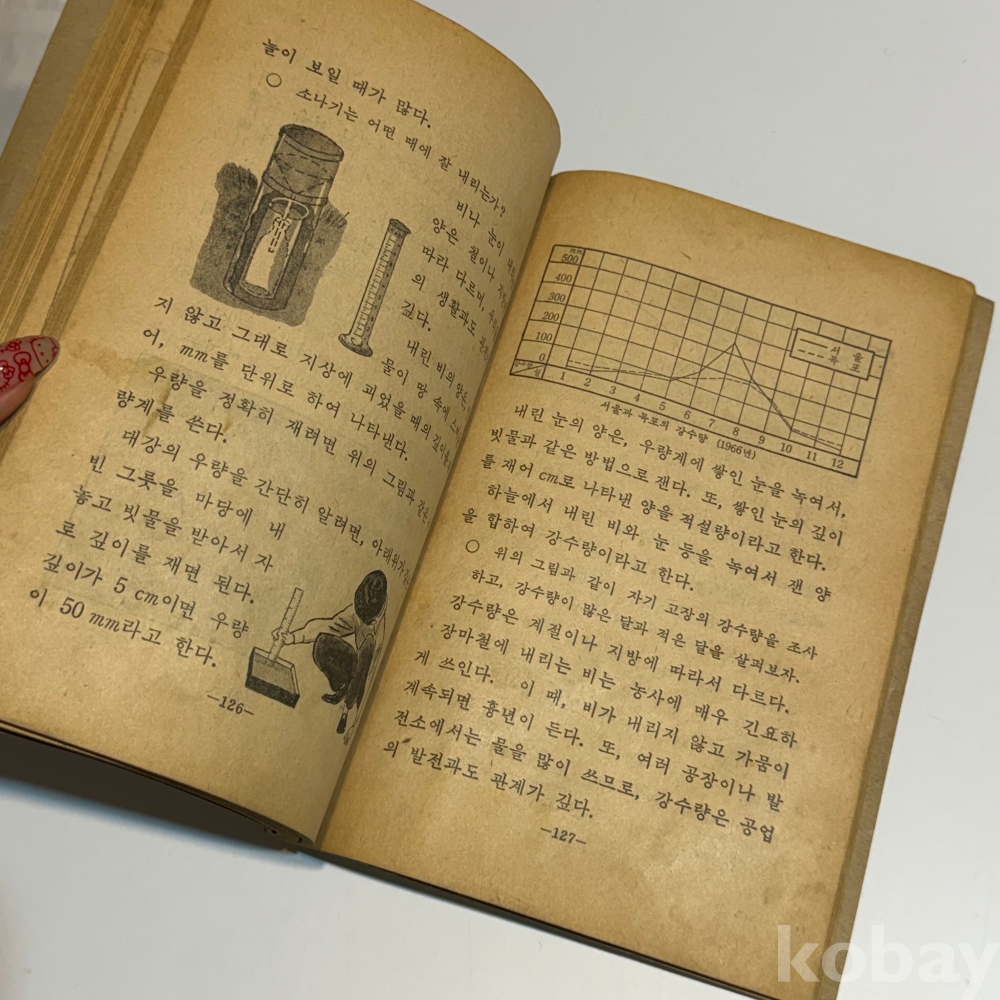 늘이 보일 때가 많다.
○ 소나기는 어떤 때에 잘 내리는가?
비나 눈이
양은 철이나
따라 다르며,
의 생활과도
깊다.
내린 비의 양은,
물이 땅 속에
지 않고 그대로 지상에 괴었을 때의
어, mm를 단위로 하여 나타낸다.
우량을 정확히 재려면 위의 그림과 같은
량계를 쓴다.
대강의 우량을 간단히 알려면,
빈 그릇을 마당에 내
놓고 빗물을 받아서 자
로 깊이를 재면 된다.
깊이가 5 cm이면 우량
이 50 mm라고 한다.
—126—
500
400
300
200
100
0
서울
목포
1 2 3 4 5 6 7 8 9 10 11 12
서울과 목포의 강수량 (1966년)
내린 눈의 양은, 우량계에 쌓인 눈을 녹여서,
빗물과 같은 방법으로 잰다. 또, 쌓인 눈의 깊이
를 재어 cm로 나타낸 양을 적설량이라고 한다.
하늘에서 내린 비와 눈 등을 녹여서 잰 양
을 합하여 강수량이라고 한다.
○ 위의 그림과 같이 자기 고장의 강수량을 조사
하고, 강수량이 많은 달과 적은 달을 살펴보자.
강수량은 계절이나 지방에 따라서 다르다.
장마철에 내리는 비는 농사에 매우 긴요하
게 쓰인다. 이 때, 비가 내리지 않고 가뭄이
계속되면 흉년이 든다. 또, 여러 공장이나 발
전소에서는 물을 많이 쓰므로, 강수량은 공업
의 발전과도 관계가 깊다.
—127—
kobay